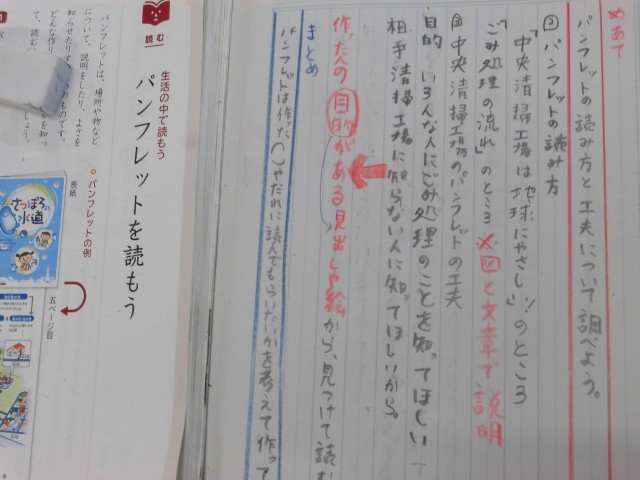 めあて
パンフレットの読み方と工夫について調べよう。
②パンフレットの読み方
「中央清掃工場は地球にやさしい!」のところ
「ごみ処理の流れ」のところ ※図と文章で説明
③中央清掃工場のパンフレットの工夫
目的 いろんな人にごみ処理のことを知ってほしい
相手 清掃工場に知らない人に知ってほしいから。
作った人の目的がある見出しや絵から、見つけて読む
まとめ
パンフレットは作った( )やだれに読んでもらいたいかを考えて作って
読む
生活の中で読もう
パンフレットを読もう
パンフレットは、場所や物など
について、説明をしたり、よさを
知らせたりす
ものです。
どんな作り
を知っ
て、読む
しょう。
パンフレットの例
表紙
さっぽろの水道
五ページ目